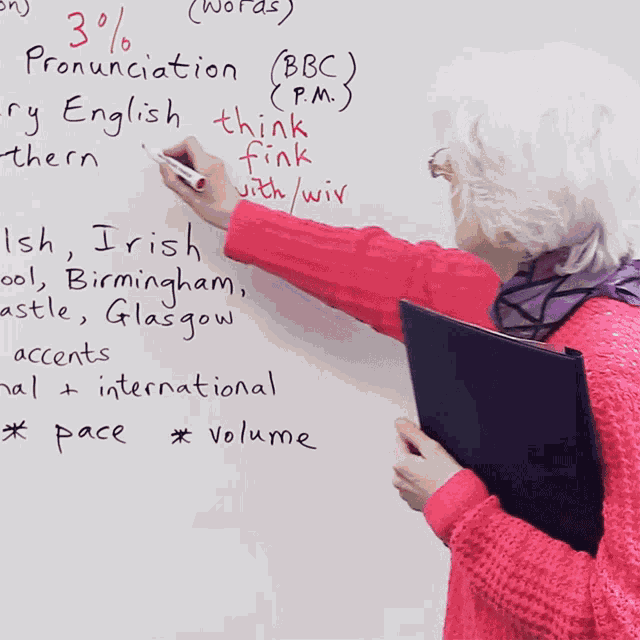 (Words)
3%
Pronunciation (BBC)
(P.M.)
ry English think
thern fink
with/wiv
lsh, Irish
ool, Birmingham,
astle, Glasgow
accents
nal + international
* pace * volume